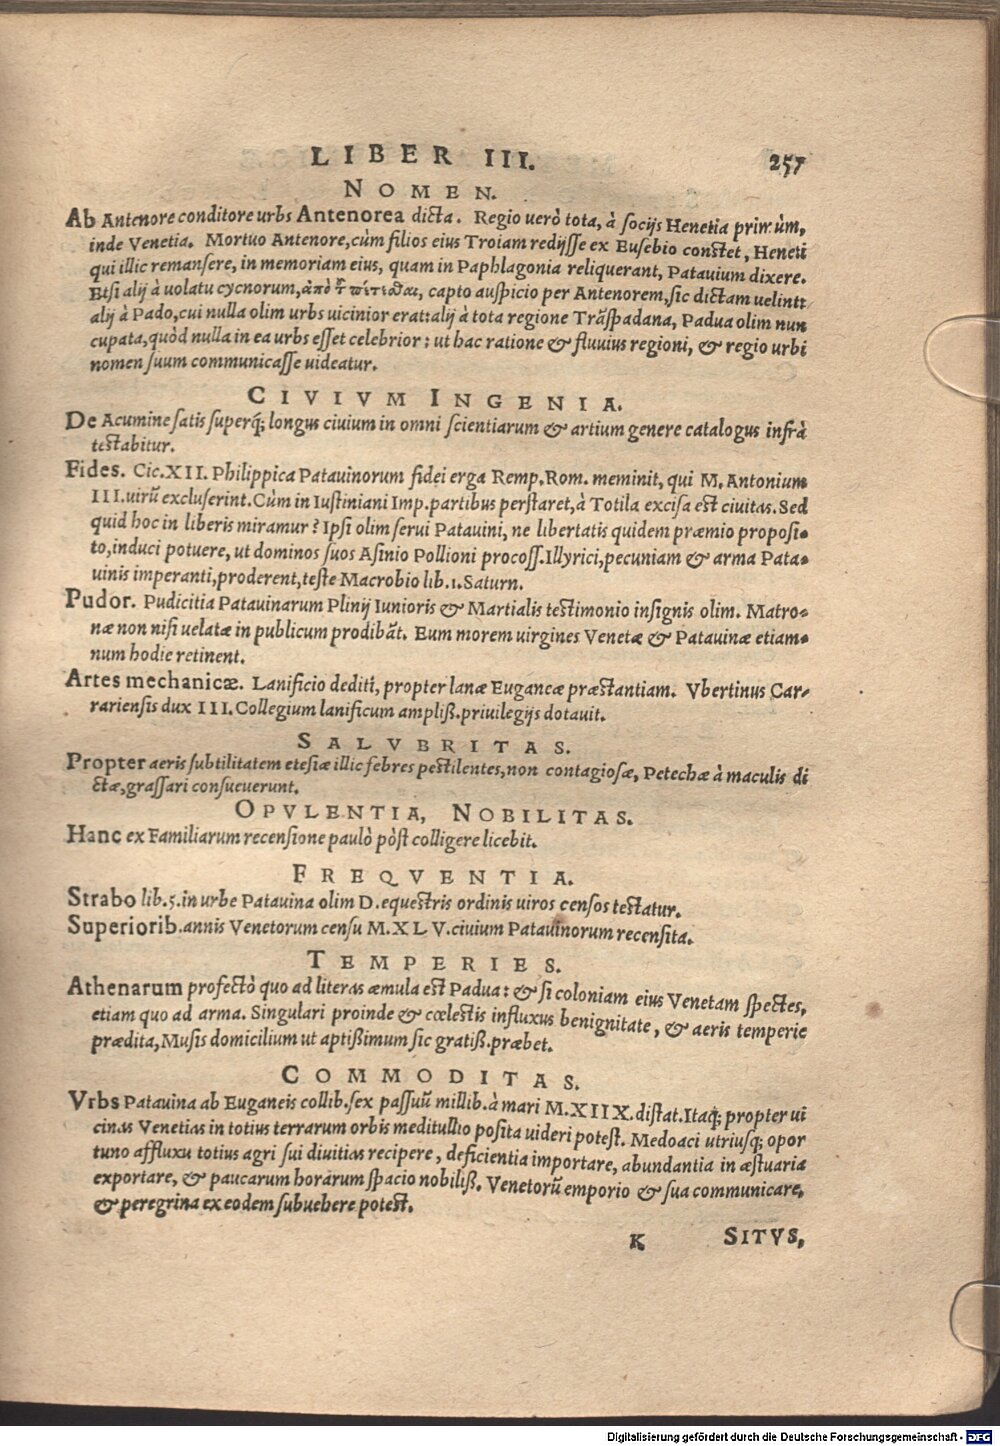 LIBER III. 257
NOMEN.
Ab Antenore conditore urbs Antenorea dicta. Regio uerò tota, à socijs Henetia primùm,
inde Venetia. Mortuo Antenore, cùm filios eius Troiam redijsse ex Eusebio constet, Heneti
qui illic remansere, in memoriam eius, quam in Paphlagonia reliquerant, Patauium dixere.
Etsi alij à uolatu cycnorum, ἀπὸ τ͂ πέτεσθαι, capto auspicio per Antenorem, sic dictam uelint:
alij à Pado, cui nulla olim urbs uicinior erat: alij à tota regione Trāspadana, Padua olim nun
cupata, quòd nulla in ea urbs esset celebrior: ut hac ratione & fluuius regioni, & regio urbi
nomen suum communicasse uideatur.
CIVIVM INGENIA.
De Acumine satis superq́; longus ciuium in omni scientiarum & artium genere catalogus infrà
testabitur.
Fides. Cic. XII. Philippica Patauinorum fidei erga Remp. Rom. meminit, qui M. Antonium
III. uirū excluserint. Cùm in Iustiniani Imp. partibus perstaret, à Totila excisa est ciuitas. Sed
quid hoc in liberis miramur? Ipsi olim serui Patauini, ne libertatis quidem præmio proposi-
to, induci potuere, ut dominos suos Asinio Pollioni procoss. Illyrici, pecuniam & arma Pata-
uinis imperanti, proderent, teste Macrobio lib. 1. Saturn.
Pudor. Pudicitia Patauinarum Plinij Iunioris & Martialis testimonio insignis olim. Matro-
næ non nisi uelatæ in publicum prodibāt. Eum morem uirgines Venetæ & Patauinæ etiam-
num hodie retinent.
Artes mechanicæ. Lanificio dediti, propter lanæ Euganeæ præstantiam. Vbertinus Car-
rariensis dux III. Collegium lanificum ampliß. priuilegijs dotauit.
SALVBRITAS.
Propter aeris subtilitatem etesiæ illic febres pestilentes, non contagiosæ, Petechæ à maculis di
ctæ, grassari consueuerunt.
OPVLENTIA, NOBILITAS.
Hanc ex Familiarum recensione paulò pòst colligere licebit.
FREQVENTIA.
Strabo lib. 5. in urbe Patauina olim D. equestris ordinis uiros censos testatur.
Superiorib. annis Venetorum censu M. XLV. ciuium Patauinorum recensita.
TEMPERIES.
Athenarum profectò quo ad literas æmula est Padua: & si coloniam eius Venetam spectes,
etiam quo ad arma. Singulari proinde & cœlestis influxus benignitate, & aeris temperie
prædita, Musis domicilium ut aptißimum sic gratiß. præbet.
COMMODITAS.
Vrbs Patauina ab Euganeis collib. sex passuū millib. à mari M. XIIX. distat. Itaq́; propter ui
cinas Venetias in totius terrarum orbis meditullio posita uideri potest. Medoaci utriusq; opor
tuno affluxu totius agri sui diuitias recipere, deficientia importare, abundantia in æstuaria
exportare, & paucarum horarum spacio nobiliß. Venetorū emporio & sua communicare,
& peregrina ex eodem subuehere potest.
K SITVS,
Digitalisierung gefördert durch die Deutsche Forschungsgemeinschaft - DFG